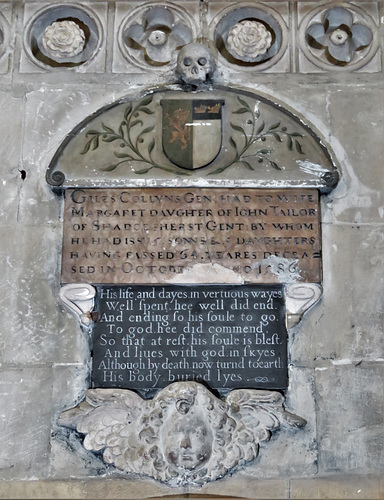 GILES COLLYNS GEN. HAD TO WIFE
MARGARET DAVGHTER OF IOHN TAILOR
OF SHADOCHERST GENT: BY WHOM
HE HAD ISSVE SONNES & DAVGHTERS
HAVING PASSED 64 YEARES DECEA=
SED IN OCTOBER NO 1586
His life and dayes, in vertuous wayes
Well spent, hee well did end.
And ending so his soule to go.
To god hee did commend
So that at rest, his soule is blest.
And liues with god in skyes
Although by death now turnd to earth
His body buried lyes